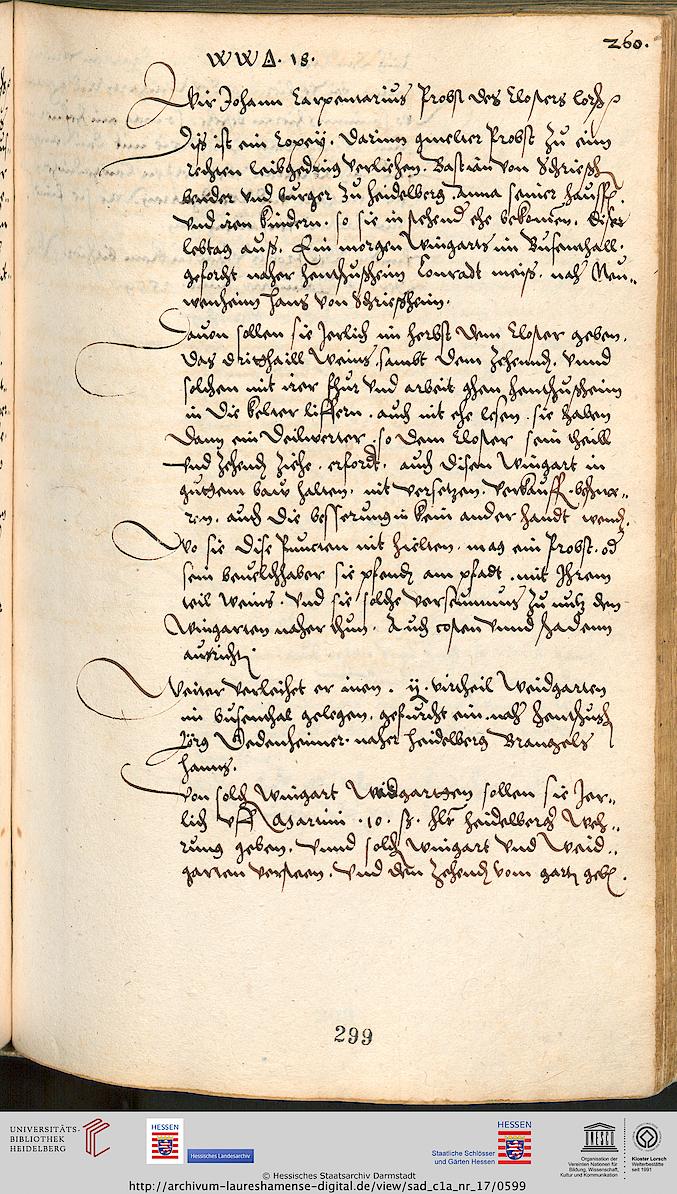 260.
WWΔ. 18.
Wir Johann Carpentarius Probst des Closters lorsch
Diß ist ein Copey. Darinn gmelter Probst zu eim
rechten leibgeding verliehen. Bastian von Schriesh
bender vnd burger zu heidelberg anna seiner haussf.
vnd iren kindern. so sie in stehend ehe bekomen. diser
lebtag auß. Ein morgen Wingarts im Busenthall.
geforcht naher hentshußheim Conradt meiß. nach Neu„
wenheim hans von Schriesheim.
Dauon sollen sie Jerlich im herbst dem Closter geben.
Das dritthaill Weins. sambt dem Zehendn. vnnd
solchen mit irer fhur vnd arbeit ghen hentshußheim
in die kelter liffern. auch nit ehe lesen. sie haben
dann ein Deilwerter. so dem Closter sein theill
vnd Zehendn Ziehe. erfordt. auch disen Wingart in
guttem baw halten. nit versetzen. verkauffn. bschwe„
ren. auch die besserung in kein ander handt wendn.
Wo sie dise Puncten nit hielten. mag ein Probst. od
sein beuelchhaber sie pfendn am pfadt. mit Ihrem
teil Weins. Vnd sie solche verseumnus zu nutz dem
Wingarten naher thun. Auch costen vnnd schadenn
aufrichtn.
Weiter verleihet er inen. ij. virtheil Weidgarten
im busenthal gelegen. gefurcht ein. nach hentshush
Jörg Dedenheimer. naher heidelberg Brangels
hanns.
Von solch Wingart Weidgartten sollen sie Jer„
lich vff Martini. 10. ß. hlr heidelberger Weh„
rung geben. vnnd solch Wingart vnd Weid„
garten versteen. Vnd den Zehendn vom gartn gebn.
299
UNIVERSITÄTS-
BIBLIOTHEK
HEIDELBERG
HESSEN
Hessisches Landesarchiv
Staatliche Schlösser
und Gärten Hessen
HESSEN
UNESCO
Organisation der
Vereinten Nationen für
Bildung, Wissenschaft,
Kultur und Kommunikation
Kloster Lorsch
Welterbestätte
seit 1991
© Hessisches Staatsarchiv Darmstadt
http://archivum-laureshamense-digital.de/view/sad_c1a_nr_17/0599